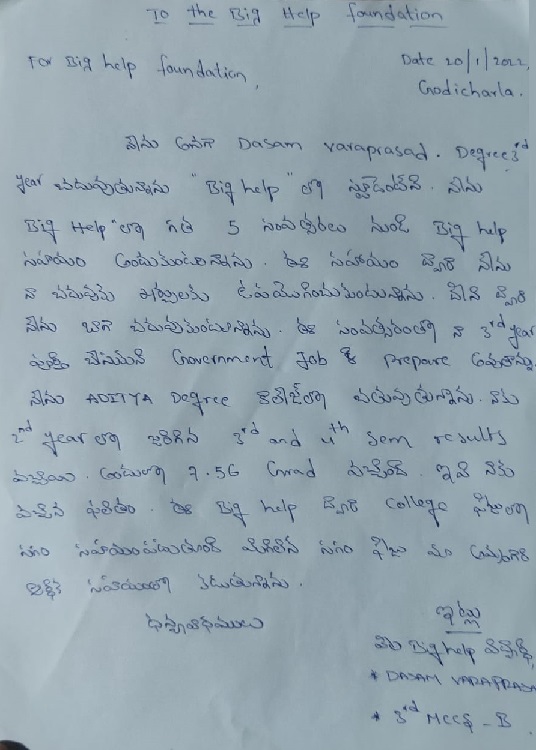 To the Big Help foundation
For Big help foundation,
Date 20/1/2022,
Godicharla.
నేను అనగా Dasam varaprasad. Degree 3rd
year చదువుతున్నాను "Big help" లో స్టూడెంట్‌ని. నేను
Big Help" లో గత 5 సంవత్సరాలు నుండి Big help
సహాయం అందుకుంటున్నాను. ఈ సహాయం ద్వారా నేను
నా చదువుకు ఖర్చులకు ఉపయోగించుకుంటున్నాను. దీని ద్వారా
నేను బాగా చదువుకుంటున్నాను. ఈ సంవత్సరంలో నా 3rd year
పూర్తి చేసుకుని Government Job కి Prepare అవుతాను.
నేను ADITYA Degree కాలేజ్‌లో చదువుతున్నాను. నాకు
2nd year లో జరిగిన 3rd and 4th Sem results
వచ్చాయి. అందులో 7.56 Grad వచ్చింది. ఇది నాకు
వచ్చిన ఫలితం. ఈ Big help ద్వారా College ఫీజులో
సగం సహాయపడుతుంది మిగిలిన సగం ఫీజు మా
ఆర్థిక సహాయంతో కడుతున్నాను.
ధన్యవాదములు
ఇట్లు
మీ Big help విద్యార్థి,
* DASAM VARAPRASA
* 3rd MCCS - B